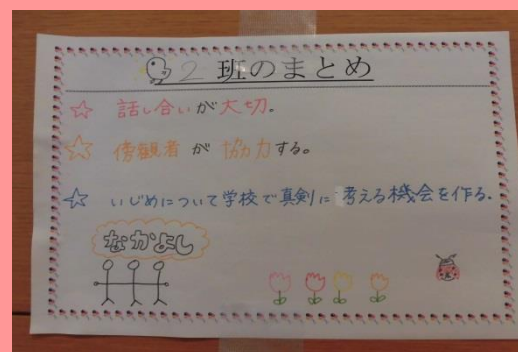 2班のまとめ
☆ 話し合いが大切。
☆ 傍観者が協力する。
☆ いじめについて学校で真剣に考える機会を作る。
なかよし